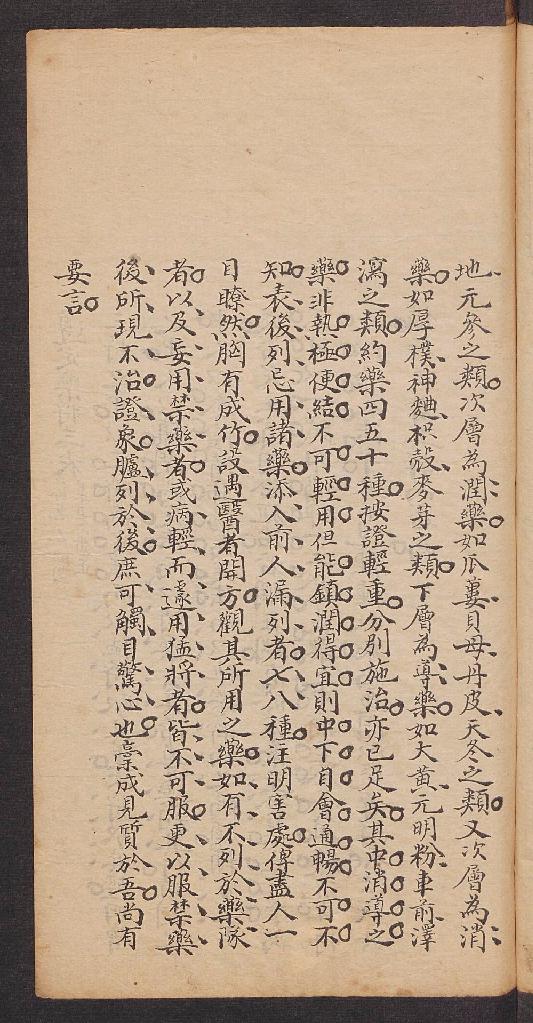 地元參之類次層為潤藥如瓜蔞貝母丹皮天冬之類又次層為消
藥如厚樸神麯枳殼麥芽之類下層為導藥如大黃元明粉車前澤
瀉之類約藥四五十種按證輕重分別施治亦已足矣其中消導之
藥非熱極便結不可輕用但能鎮潤得宜則中下自會通暢不可不
知表後列忌用諸藥添入前人漏列者七八種注明害處俾盡人一
目瞭然胸有成竹設遇醫者開方觀其所用之藥如有不列於藥隊
者以及妄用禁藥者或病輕而遽用猛將者皆不可服更以服禁藥
後所現不治證象臚列於後庶可觸目驚心也稾成見質於吾尚有
要言